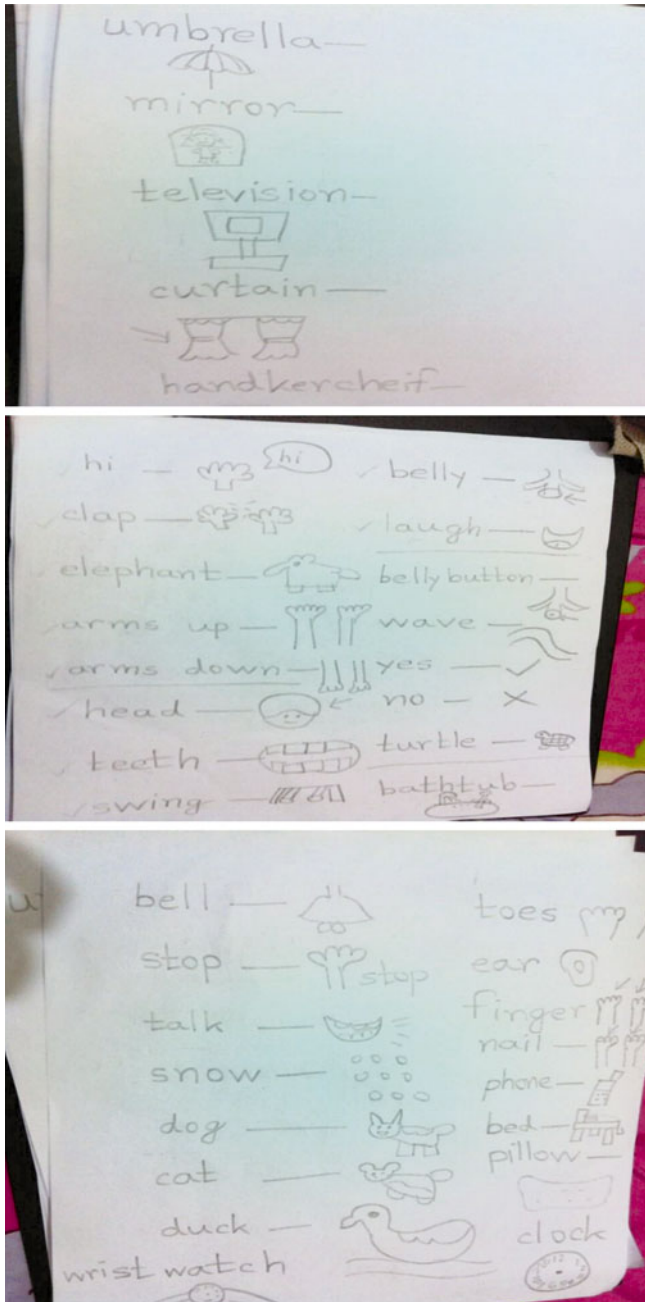 umbrella—
mirror—
television—
curtain —
handkercheif—
hi — hi
clap —
elephant—
arms up —
arms down—
head —
teeth —
swing —
belly —
laugh —
belly button—
wave —
yes —
no —
turtle —
bathtub—
bell —
stop — stop
talk —
snow —
dog —
cat —
duck —
wrist watch
toes
ear
finger
nail —
phone—
bed—
pillow—
clock